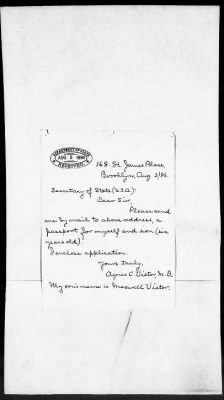 DEPARTMENT OF STATE
AUG 5 1896
RECEIVED
168 St. James Place,
Brooklyn, Aug. 3/96.
Secretary of State (U.S.A.):
Dear Sir,
Please send
me by mail to above address, a
passport for myself and son (six
years old).
I enclose application.
Yours truly,
Agnes C. Vietor, M.D.
My son's name is Maxwell Vietor.